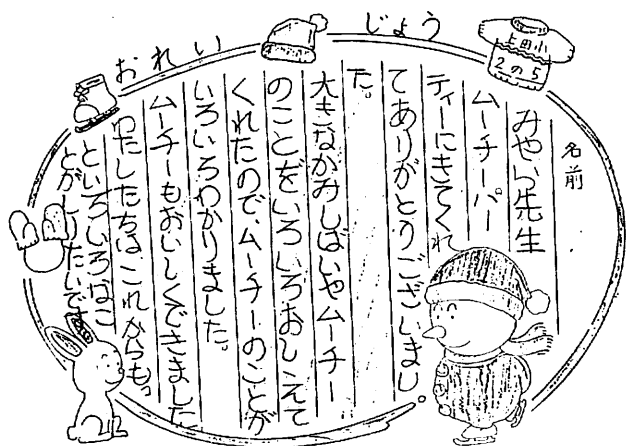 おれいじょう
上田小
2の5
名前
みやら先生
ムーチーパー
ティーにきてくれ
てありがとうございまし
た。
大きなかみしばいやムーチー
のことをいろいろおしえて
くれたので、ムーチーのことが
いろいろわかりました。
ムーチーもおいしくできました
わたしたちはこれからも。
といろいろなこ
とがしりたいです